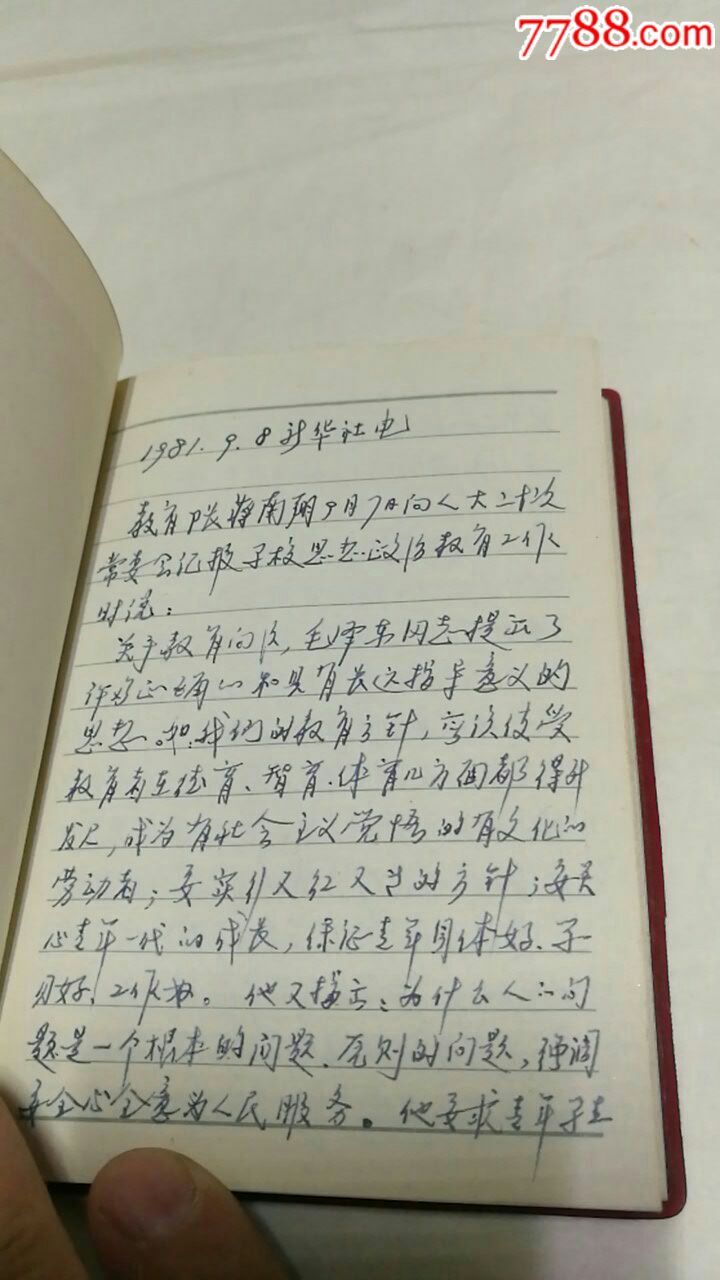 7788.com
1981.9.8新华社电
教育部长蒋南翔9月7日向人大二十次
常委会汇报学校思想政治教育工作
时说：
关于教育问题，毛泽东同志提出了
许多正确的和具有长远指导意义的
思想。如，我们的教育方针，应该使受
教育者在德育、智育、体育几方面都得到
发展，成为有社会主义觉悟的有文化的
劳动者；要实行又红又专的方针；要关
心青年一代的成长，保证青年身体好、学
习好、工作好。他又指出：为什么人的问
题是一个根本的问题、原则的问题，强调
要全心全意为人民服务。他要求青年学生